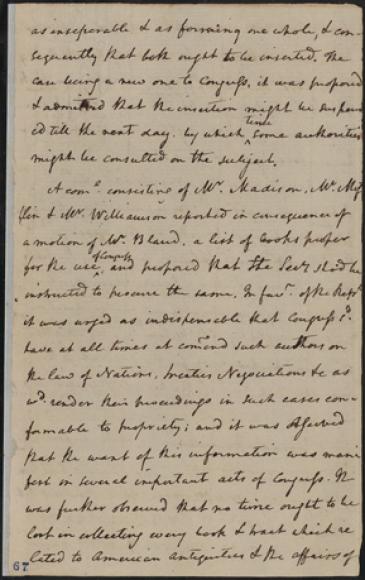 as inseperable & as forming one whole, & con-
sequently that both ought to be inserted. The
case being a new one to Congress, it was proposed
& admitted that the insertion might be suspend
ed till the next day. by which time some authorities
might be consulted on the subject.
A come. consisting of Mr. Madison, Mr. Mif
flin & Mr. Williamson reported in consequence of
a motion of Mr. Bland. a list of books proper
for the use of Congress, and proposed that the Secy. shd. be
instructed to procure the same. In favr. of the Rept.
it was urged as indispensable that Congress sd.
have at all times at comand such authors on
the law of Nations, treaties Negotiations &c as
wd. render their proceedings in such cases con-
formable to propriety; and it was observed
that the want of this information was mani
fest in several important acts of Congress. It
was further observed that no time ought to be
lost in collecting every book & tract which re
lated to American Antiquities & the affairs of
67